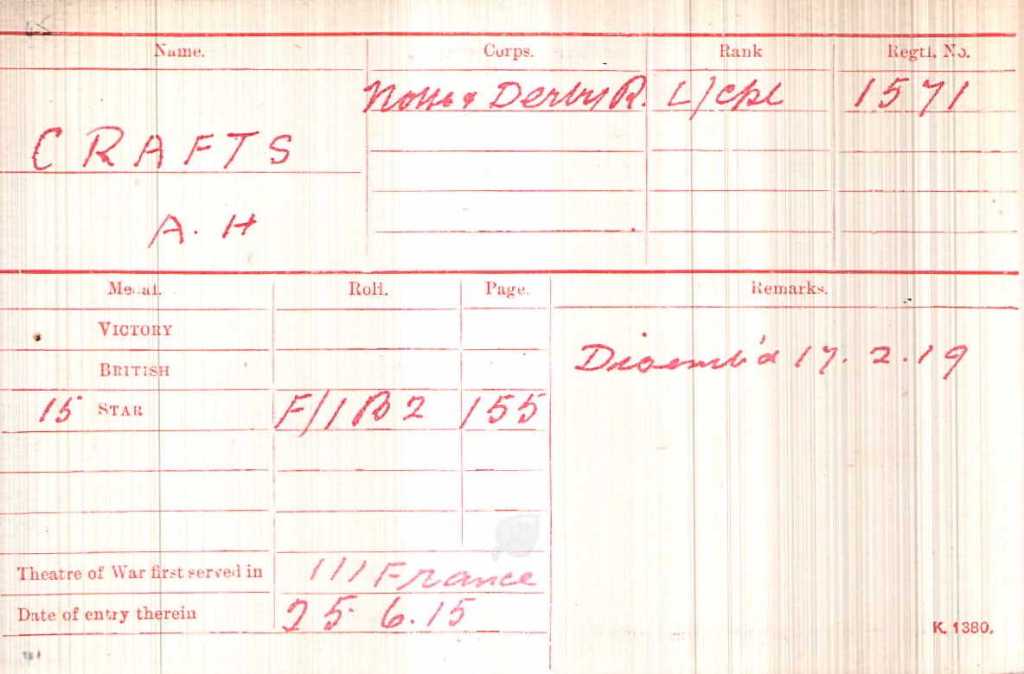 Name. Corps. Rank Regtl. No.
Notts & Derby R. L/cpl 1571
CRAFTS
A. H
Medal. Roll. Page. Remarks.
VICTORY
BRITISH
Disemb'd 17.2.19
15 STAR F/1 B2 155
Theatre of War first served in 111 France
Date of entry therein 25 6.15
K. 1380.